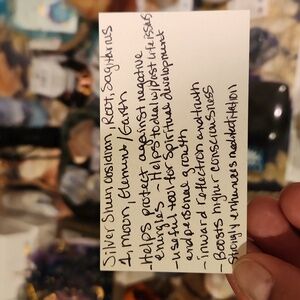 Silver Sheen obsidian, Root, Sagittarius
1, moon, Element/Earth
-Helps protect against negative
energies - Helps to deal w/past life issues
-useful tool for Spiritual development
and personal growth
-inward reflection and truth
-Boosts higher consciousness
Strongly enhances meditation